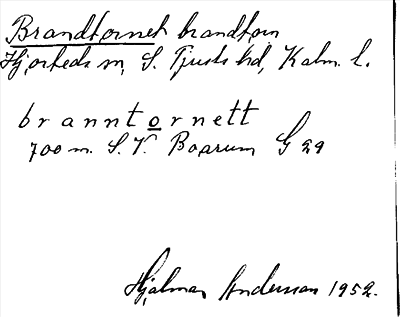 Brandtornet brandtorn
Hjorteds sn, S. Tjusts hd, Kalm. l.
branntornett
700 m. S. V. Boarum G 29
Hjalmar Andersson 1952.